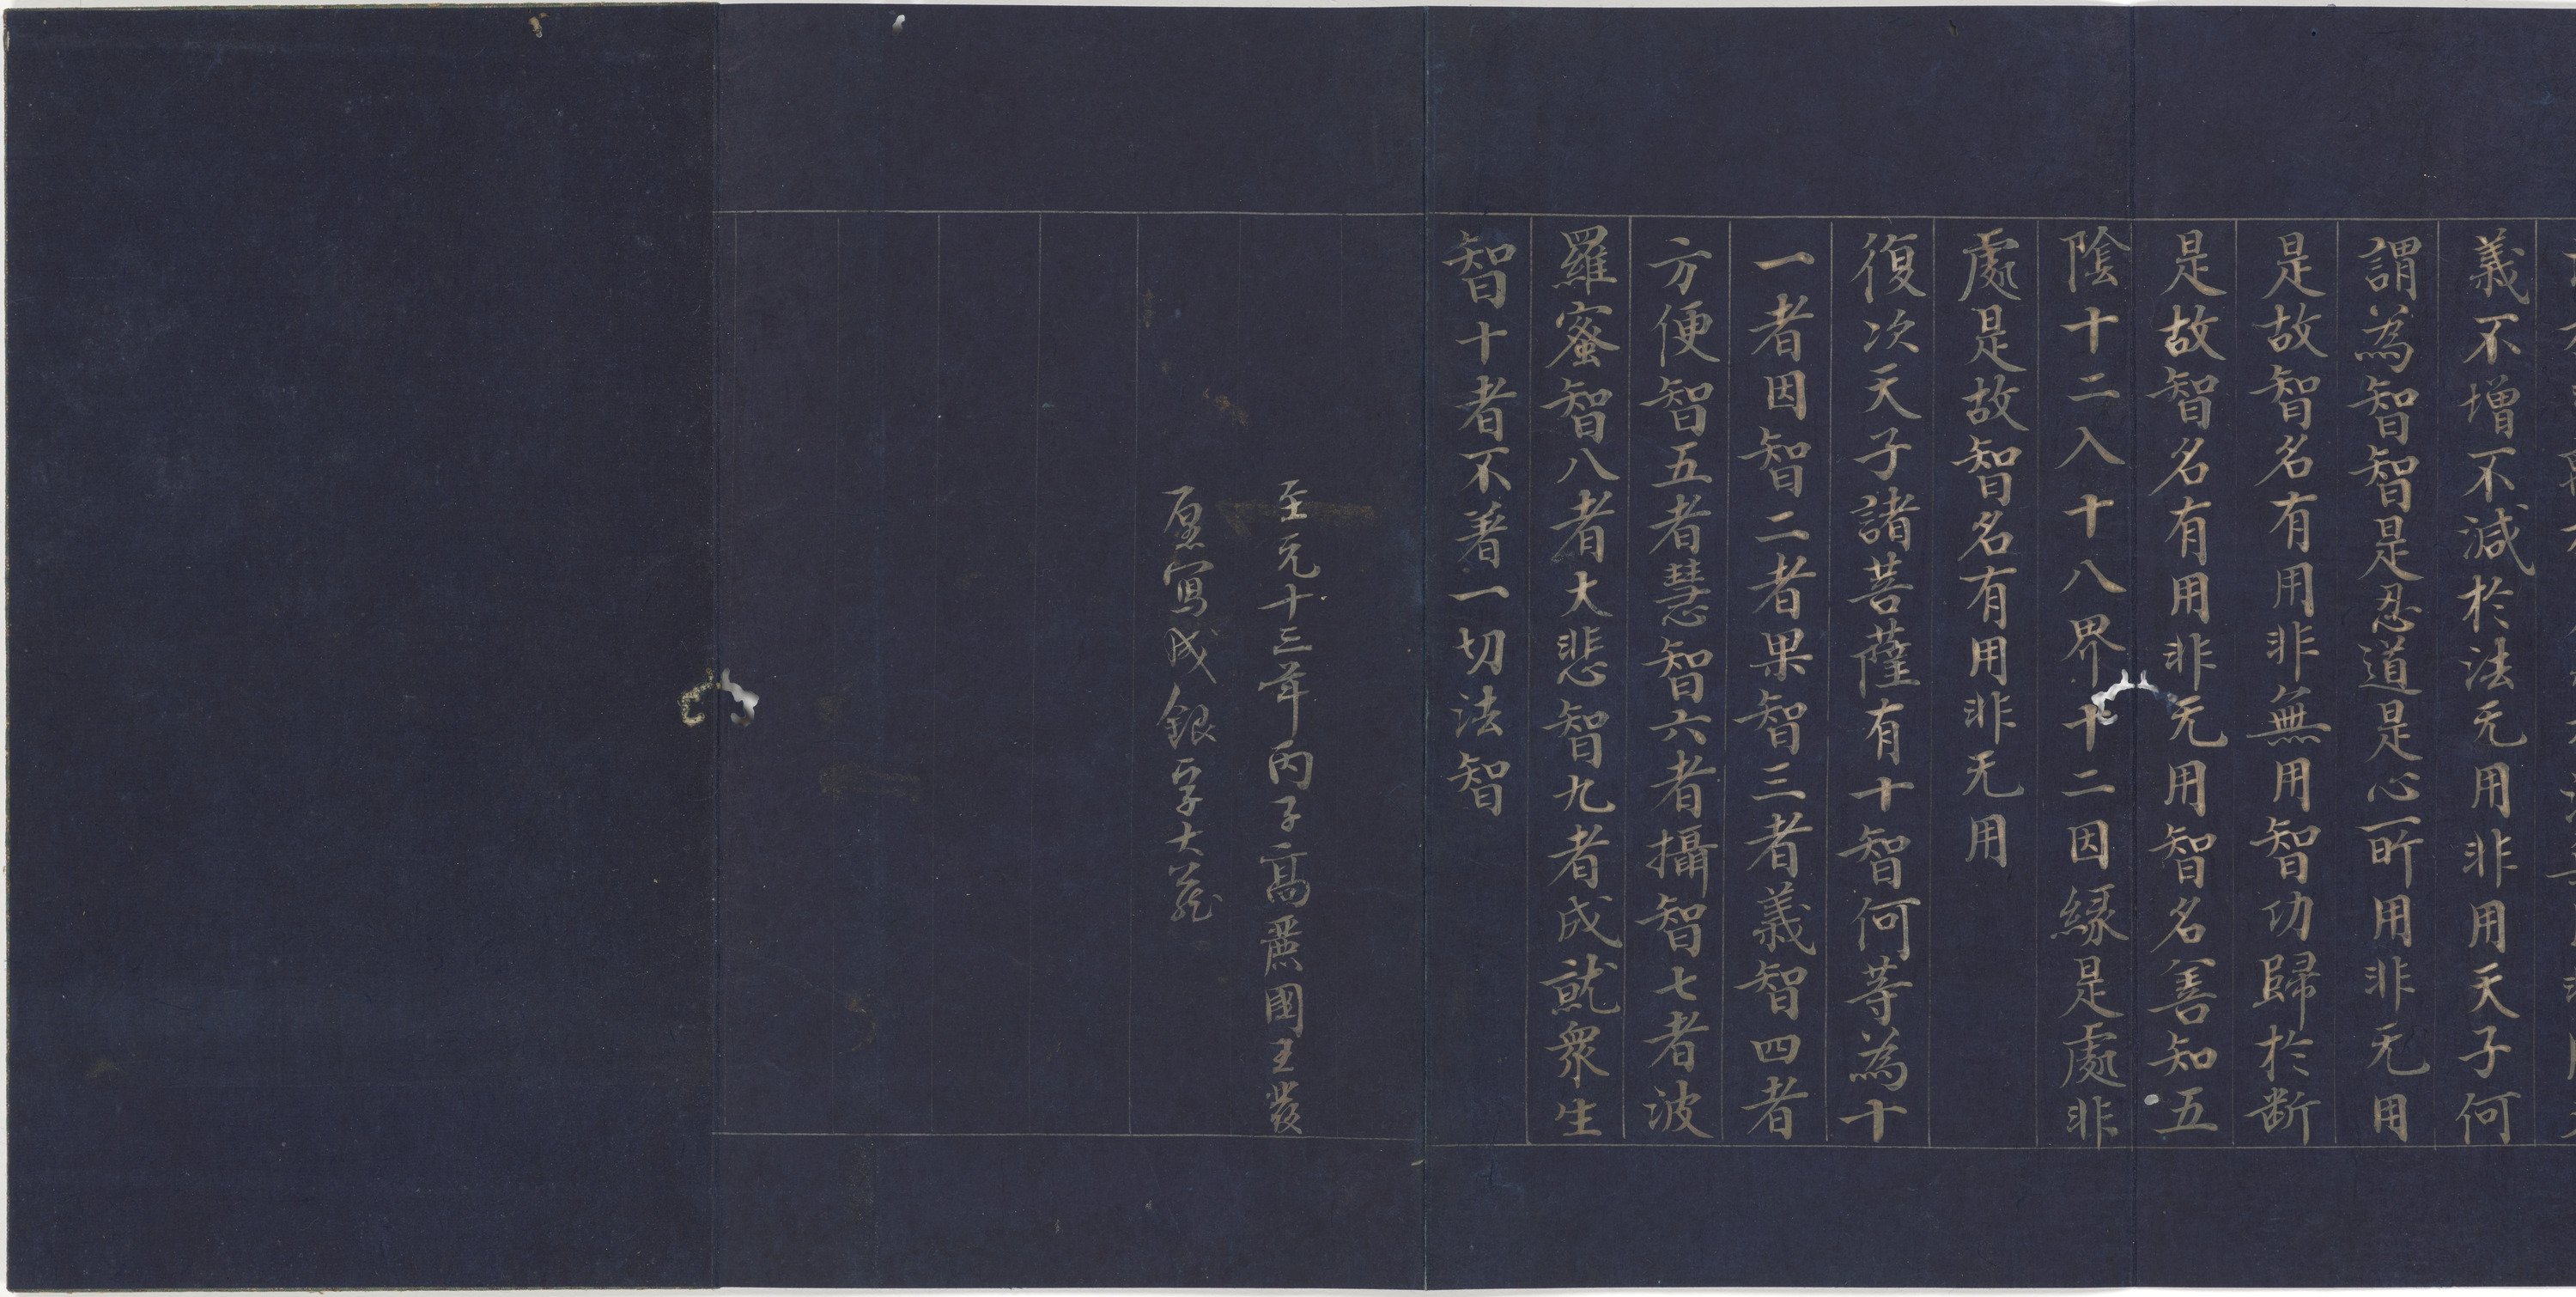 義不增不減於法无用非用天子何
謂為智智是忍道是心一所用非无用
是故智名有用非無用智功歸於断
是故智名有用非无用智名善知五
陰十二入十八界十二因縁是處非
處是故智名有用非无用
復次天子諸菩薩有十智何等為十
一者因智二者果智三者義智四者
方便智五者慧智六者攝智七者波
羅蜜智八者大悲智九者成就衆生
智十者不著一切法智
至元十三年丙子高麗國王發
願寫成銀字大藏